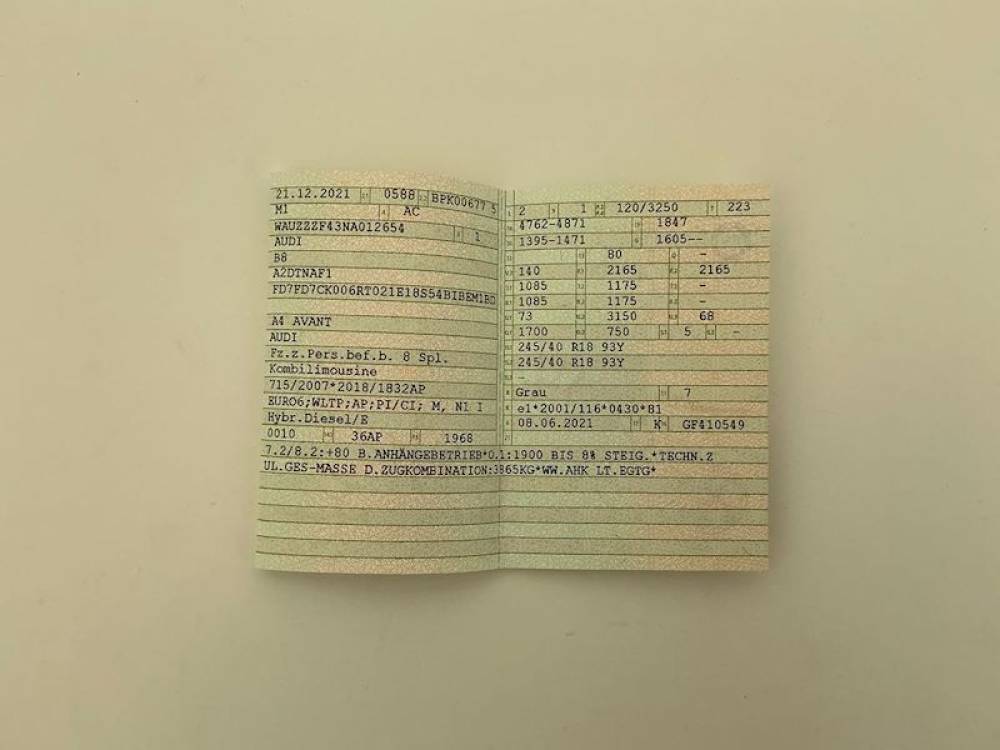 21.12.2021 0588 BPK00677 5
M1 AC
WAUZZZF43NA012654 1
AUDI
B8
A2DTNAF1
FD7FD7CK006RT021E18S54BIBEM1BD
A4 AVANT
AUDI
Fz.z.Pers.bef.b. 8 Spl.
Kombilimousine
715/2007*2018/1832AP
EURO6;WLTP;AP;PI/CI; M, N1 I
Hybr.Diesel/E
0010 36AP 1968
2 1 120/3250 223
4762-4871 1847
1395-1471 1605--
80 -
140 2165 2165
1085 1175 -
1085 1175 -
73 3150 68
1700 750 5 -
245/40 R18 93Y
245/40 R18 93Y
-
Grau 7
e1*2001/116*0430*81
08.06.2021 K GF410549
7.2/8.2:+80 B.ANHÄNGEBETRIEB*O.1:1900 BIS 8% STEIG.*TECHN.Z
UL.GES-MASSE D.ZUGKOMBINATION:3865KG*WW.AHK LT.EGTG*